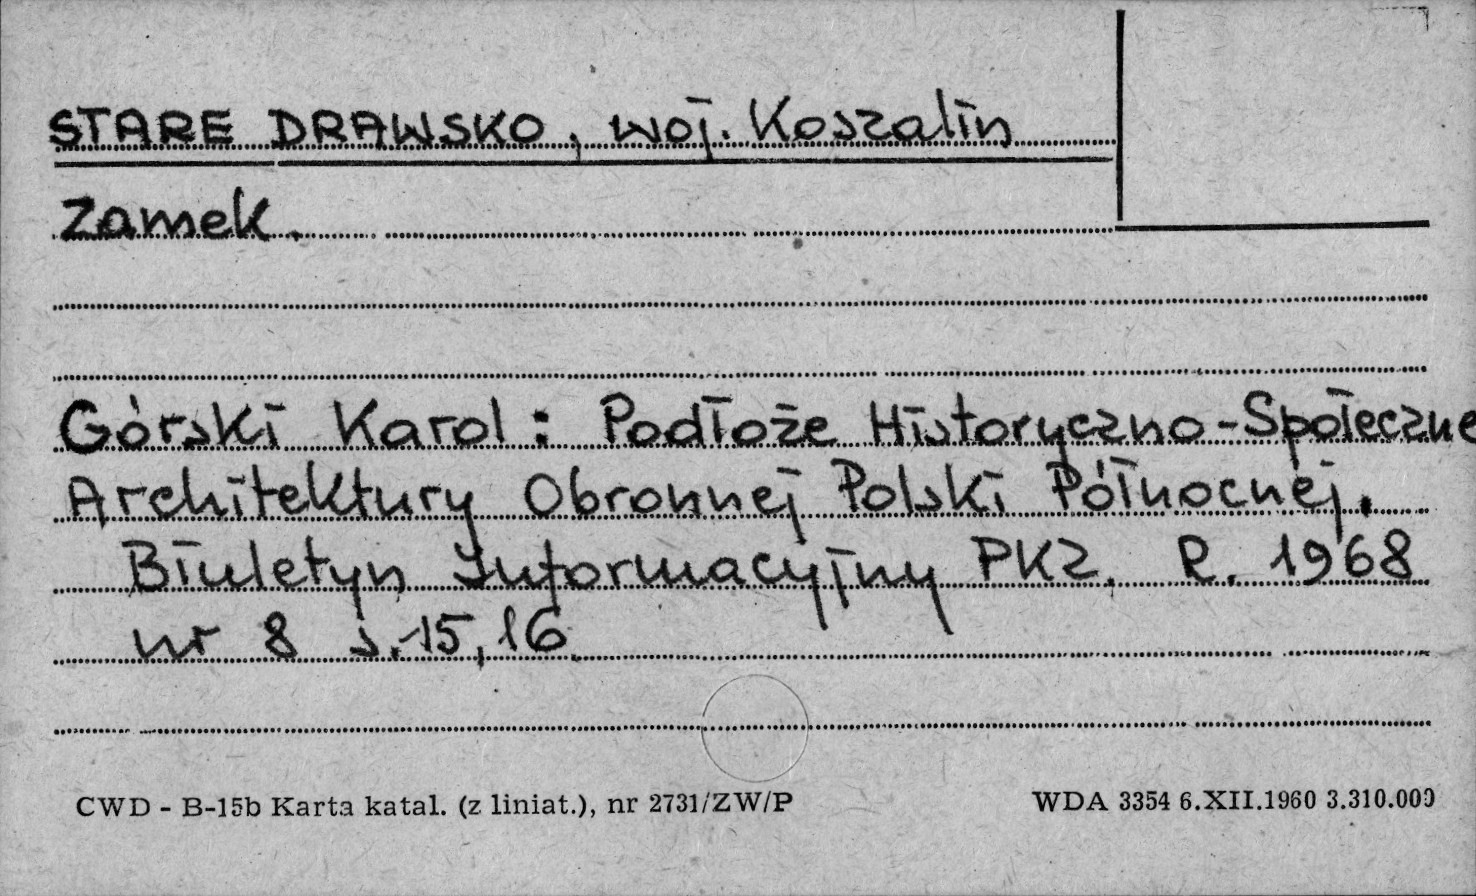 STARE DRAWSKO, woj. Koszalin
Zamek.
Górski Karol: Podłoże Historyczno-Społeczne
Architektury Obronnej Polski Północnej.
Biuletyn Informacyjny PKZ. R. 1968
nr 8 s.15,16.
CWD - B-15b Karta katal. (z liniat.), nr 2731/ZW/P
WDA 3354 6.XII.1960 3.310.000